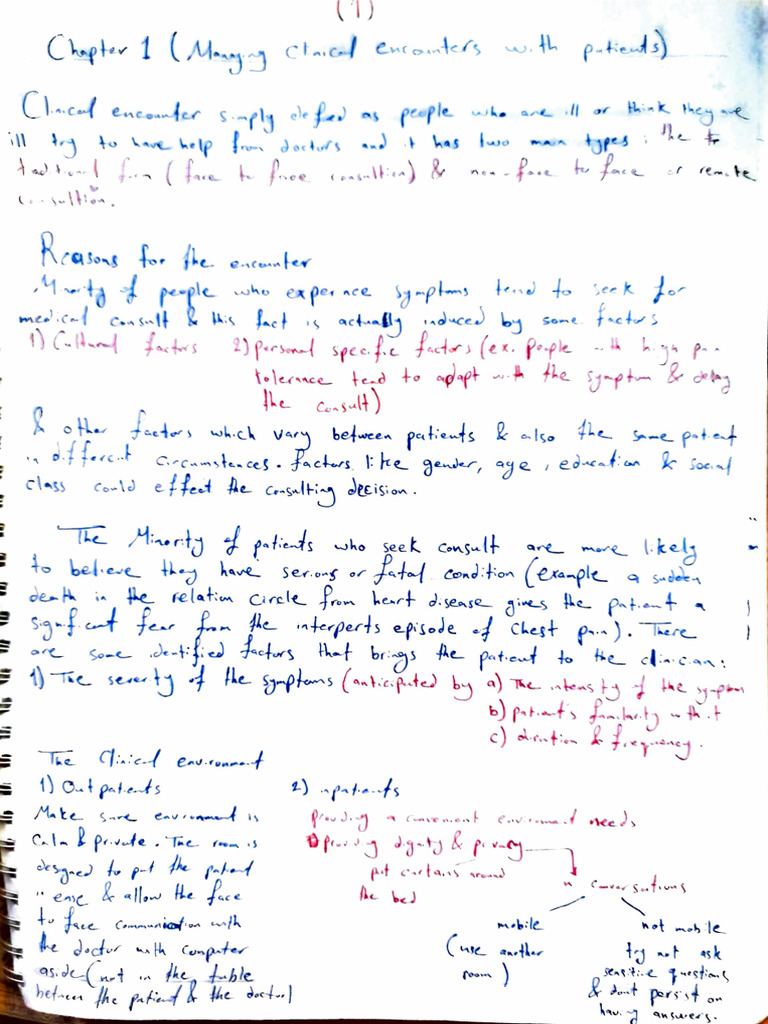 (1)
Chapter 1 (Managing clinical encounters with patients)
Clinical encounter simply defied as people who are ill or think they are
ill try to have help from doctors and it has two main types : the
traditional form (face to face consultion) & non-face to face or remote
consultion.
Reasons for the encounter
Minority of people who experince symptoms tend to seek for
medical consult & this fact is actually induced by some factors
1) Cultural factors 2) personal specific factors (ex. people with high pain
tolerance tend to adapt with the symptom & delay
the consult)
& other factors which vary between patients & also the same patient
in different circumstances. factors like gender, age, education & social
class could effect the consulting decision.
The Minority of patients who seek consult are more likely
to believe they have serious or fatal condition (example a sudden
death in the relation circle from heart disease gives the patient a
significant fear from the interperts episode of chest pain). There
are some identified factors that brings the patient to the clinician:
1) The severity of the symptoms (anticipated by a) The intensity of the symptom
b) patient's familarity with it
c) duration & frequency.
The Clinical environment
1) Outpatients
Make sure environment is
Calm & private. The room is
designed to put the patient
in ease & allow the face
to face communication with
the doctor with computer
aside (not in the table
between the patient & the doctor)
2) inpatients
providing a convenient environment needs
1) providing dignity & privacy
put curtains around
the bed
in conversations
mobile
(use another
room)
not mobile
try not ask
sensitive questions
& dont persist on
having answers.